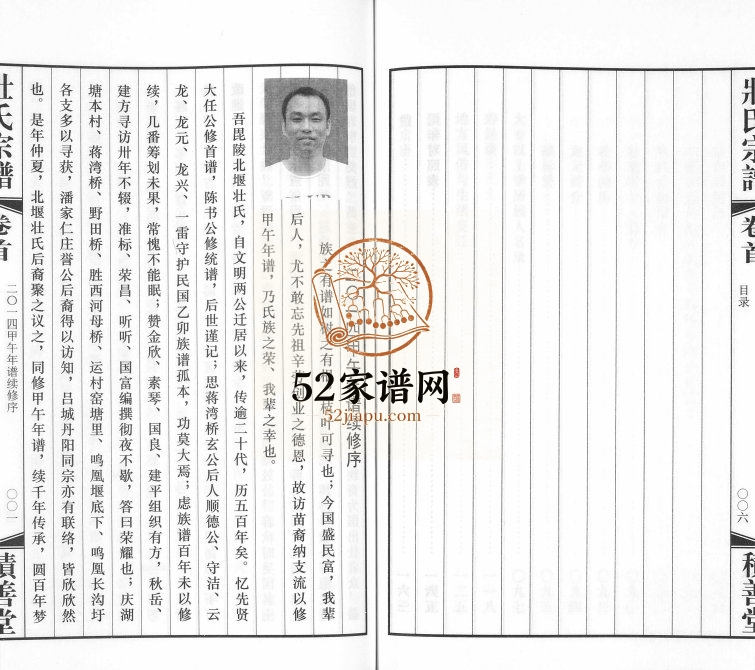 莊氏宗譜
卷首
目录
〇〇六
積善堂
二〇一四甲午年谱续修序
族之有谱如树之有根，枝叶可寻也；今国盛民富，我辈
后人，尤不敢忘先祖辛劳创业之德恩，故访苗裔纳支流以修
甲午年谱，乃氏族之荣、我辈之幸也。
吾毘陵北堰壮氏，自文明两公迁居以来，传逾二十代，历五百年矣。忆先贤
大任公修首谱，陈书公修统谱，后世谨记；思蒋湾桥玄公后人顺德公、守洁、云
龙、龙元、龙兴、一雷守护民国乙卯族谱孤本，功莫大焉；虑族谱百年未以修
续，几番筹划未果，常愧不能眠；赞金欣、素琴、国良、建平组织有方，秋岳、
建方寻访卅年不辍，准标、荣昌、听听、国富编撰彻夜不歇，答曰荣耀也；庆湖
塘本村、蒋湾桥、野田桥、胜西河母桥、运村窑塘里、鸣凰堰底下、鸣凰长沟圩
各支多以寻获，潘家仁庄誉公后裔得以访知，吕城丹阳同宗亦有联络，皆欣欣然
也。是年仲夏，北堰壮氏后裔聚之议之，同修甲午年谱，续千年传承，圆百年梦
壯氏宗譜
卷首
二〇一四甲午年谱续修序
〇〇一
積善堂
52家谱网
52jiapu.com